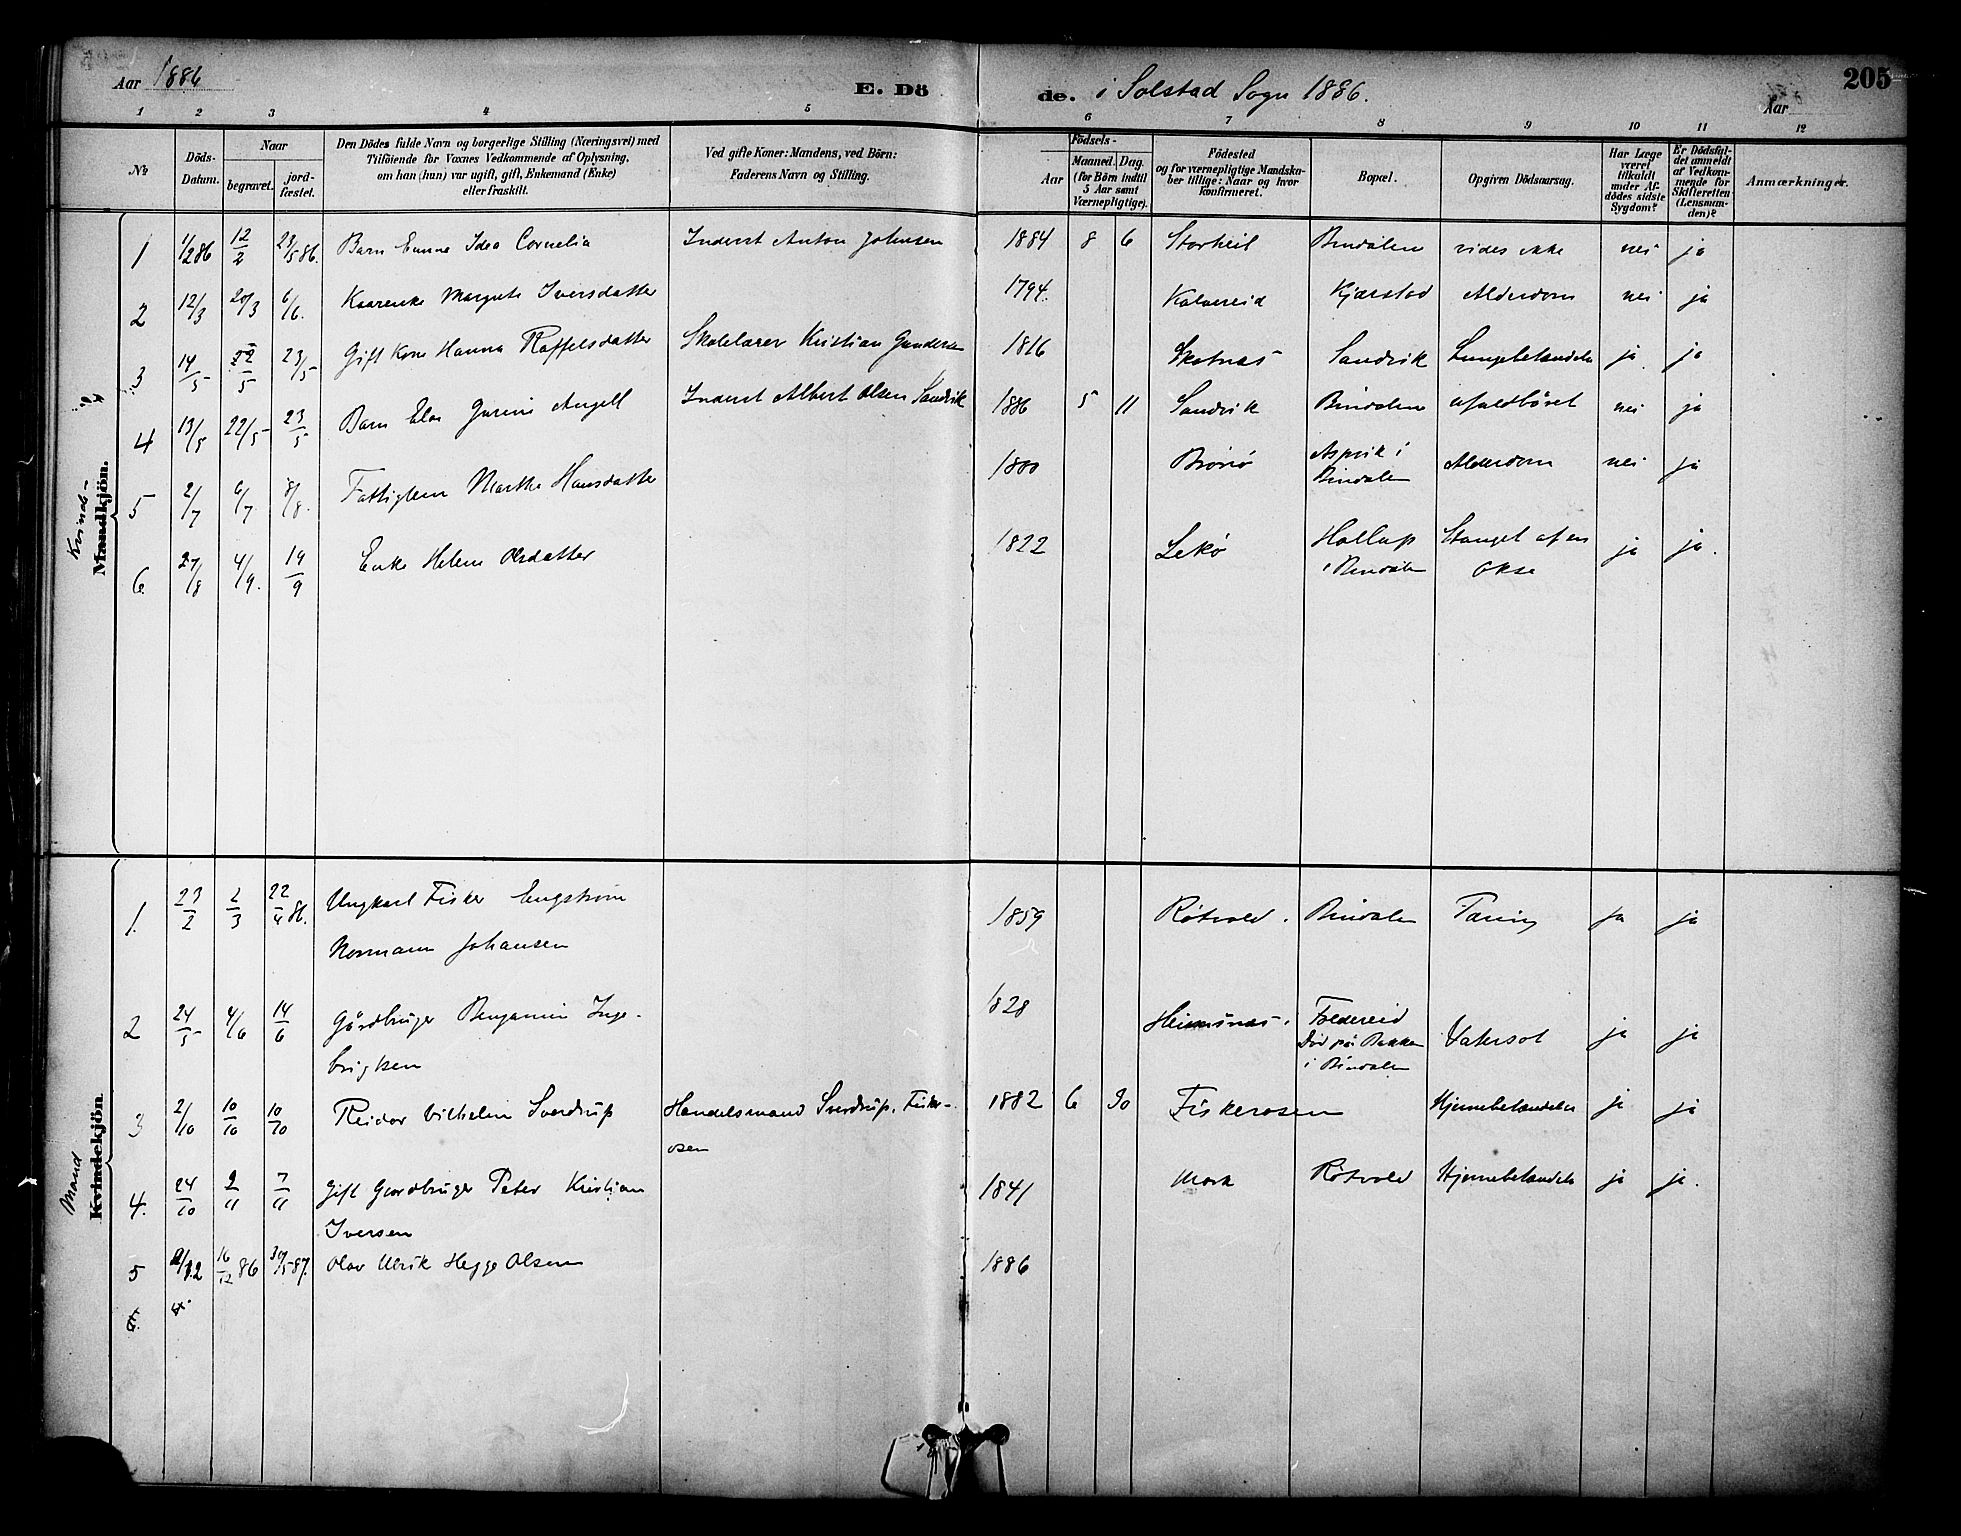 Aar 1886
E. Dö
de. i Solstad Sogn 1886.
Aar
205
1 2 3 4 5 6 7 8 9 10 11 12
No
Döds-Datum.
Naar
begravet.
jord-fæstet.
Den Dödes fulde Navn og borgerlige Stilling (Næringsvei) med
Tilföiende for Voxnes Vedkommende af Oplysning,
om han (hun) var ugift, gift, Enkemand (Enke)
eller fraskilt.
Ved gifte Koner: Mandens, ved Börn:
Faderens Navn og Stilling.
Födsels-
Aar
Maaned. Dag.
(for Börn indtil
5 Aar samt
Værnepligtige).
Födested
og for værnepligtige Mandska-
ber tillige: Naar og hvor
konfirmeret.
Bopæl.
Opgiven Dödsaarsag.
Har Læge
været
tilkaldt
under Af-
dödes sidste
Sygdom?
Er Dödsfal-
det anmeldt
af Vedkom-
mende for
Skifteretten
(Lensman-
den)?
Anmærkninger.
Kvinde-
Mandkjön.
1 1/2 86 12/2 23/5 86. Barn Emma Idea Cornelia Inderst Anton Johnsen 1884 8 6 Storheil Bindalen vides ikke nei ja
2 12/3 20/3 6/6. Kaarenke Margrete Iversdatter 1794. Kalvereid Kjærstad Alderdom nei ja
3 14/5 22/5 23/5 Gift Kone Hanna Raffelsdatter Skolelærer Kristian Gundersen 1816 Skotnæs Sandvik Lungebetændelse ja ja
4 13/5 22/5 23/5 Barn Elas Gurine Angell Inderst Albert Olsen Sandvik 1886 5 11 Sandvik Bindalen nei ja
5 2/7 6/7 8/8. Fattiglem Marthe Hansdatter 1800 Brönö Aspvik i Bindalen Alderdom nei ja
6. 27/8 4/9. 19/9 Enke Helene Olsdatter 1822 Lekø Hollup i Bindalen Stanget af en Okse ja ja.
Mand
Kvindekjön
1. 23/2 2/3 22/4 86. Ungkarl Fisker Engstrøm 1859 Røtvold. Bindalen Tæring ja ja
Normann Johansen
2 24/5 4/6 14/6 Gårdbruger Benjamin Inge- 1828 Heimsnæs. Foldereid
Død på Bakken
i Bindalen Vatersot ja ja
brigtsen
3 2/10 10/10 10/10 Reidar Vilhelm Sverdrup Handelsmand Sverdrup, Fisker- 1882 6 30 Fiskerosen Hjernebetændelse ja ja
osen
4. 24/10 2/11 7/11 Gift Gaardbruger Peter Kristian 1841 Mork Røtvold Hjernebetændelse ja ja.
Iversen
5 /12 16/12 86 30/5 87. Olav Ulrik Hegge Olsen 1886
6.